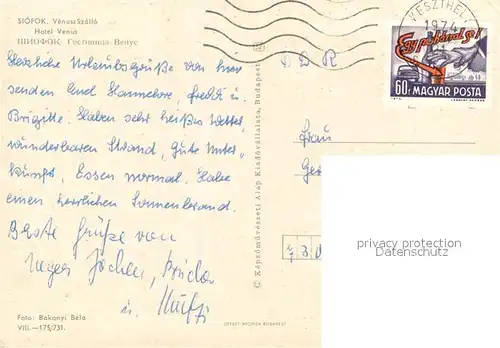 SIÓFOK. Vénusz Szálló
Hotel Venus
ШИОФОК Гостиница Венус
Herzliche Urlaubsgrüße von hier
senden Euch Hannelore, Freddi u.
Brigitte. Haben sehr heißes Wetter,
wunderbaren Strand, Gute Unter-
kunft, Essen normal. Habe
einen herrlichen Sonnenbrand.
Beste Grüße von
Jochen,
u.
Foto: Bakonyi Béla
VIII.—175/731.
© Képzőművészeti Alap Kiadóvállalata, Budapest
OFFSET-NYOMDA BUDAPEST
DDR
KESZTHELY
1974
Egy pohárral se!
60f MAGYAR POSTA
Frau
privacy protection
Datenschutz